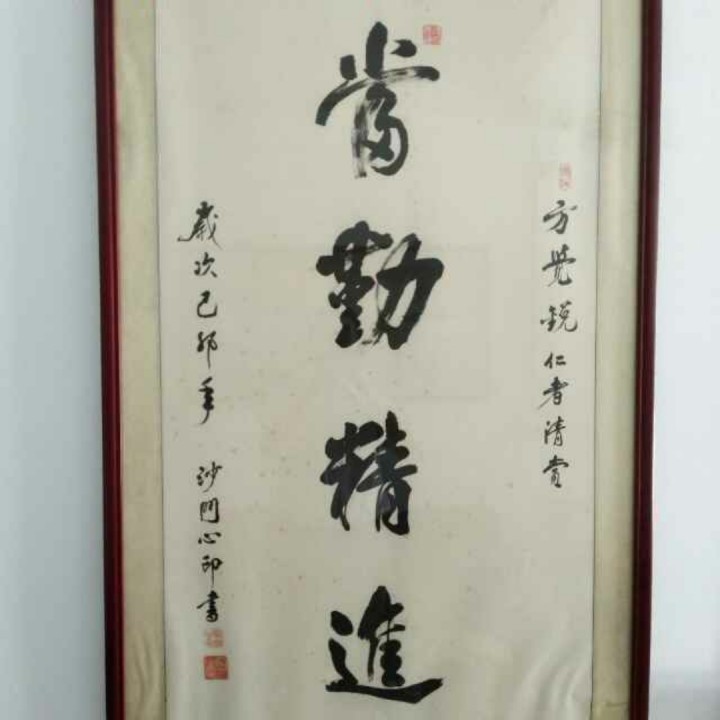 方覺銳仁者清賞
當勤精進
歲次己卯年 沙門心印書